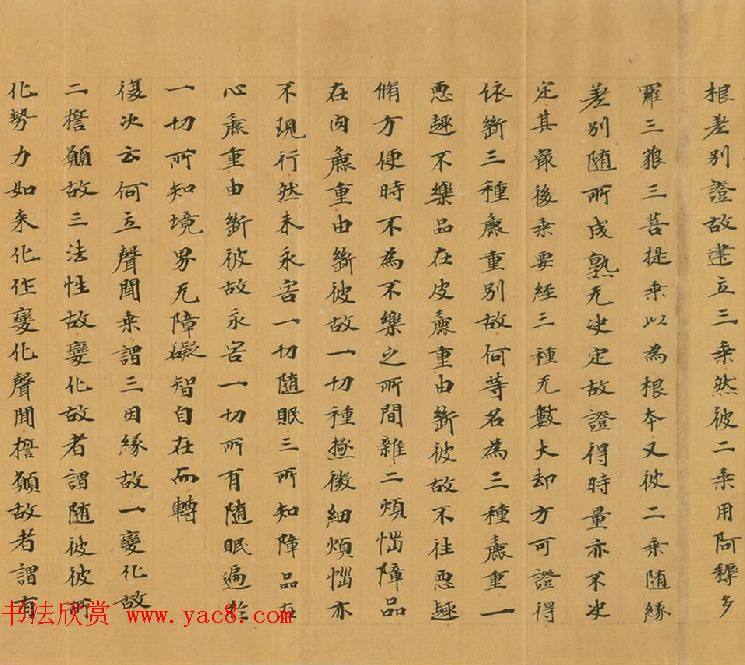 根差別證故建立三乘然彼二乘用阿耨多
羅三藐三菩提乘以為根本又彼二乘隨緣
差別隨所成熟无決定故證得時量亦不決
定其最後乘要經三種无數大劫方可證得
依斷三種麁重別故何等名為三種麁重一
惡趣不樂品在皮麁重由斷彼故不往惡趣
脩方便時不為不樂之所間雜二煩惱障品
在肉麁重由斷彼故一切種極微細煩惱亦
不現行然未永害一切隨眠三所知障品在
心麁重由斷彼故永害一切所有隨眠遍於
一切所知境界无障礙智自在而轉
復次云何立聲聞乘謂三因緣故一變化故
二擔願故三法性故變化故者謂隨彼彼所
化勢力如来化作變化聲聞擔願故者謂有
书法欣赏 www.yac8.com